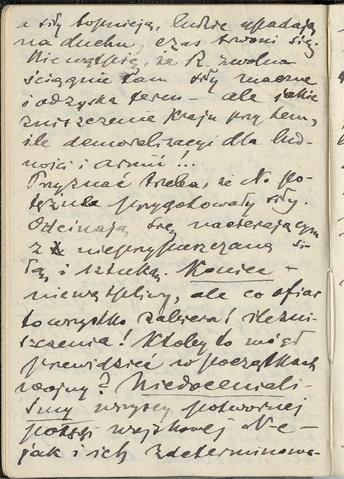 a siły topnieją, ludzie upadają
na duchu, czas trwoni się.
Nie wątpię, że R. zwolna
ściągnie tam siły znaczne
i odzyska teren – ale jakie
zniszczenie kraju przy tem,
ile demoralizacyi dla lud-
ności i armii!..
Przyznać trzeba, że N. po-
tężnie przygotowały siły.
Odcinają się nacierającym
z nieprzypuszczaną si-
łą i sztuką. Koniec –
niewątpliwy, ale co ofiar
to wszystko zabiera! ile zni-
szczenia! Ktoby to mógł
przewidzieć w początkach
wojny? Niedoceniali-
śmy wszyscy potwornej
potęgi wojskowej N-c
jak i ich zdeterminowa-